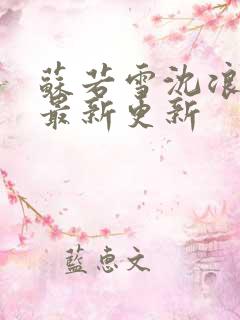 蘇若雪沈浪
最新更新
藍惠文